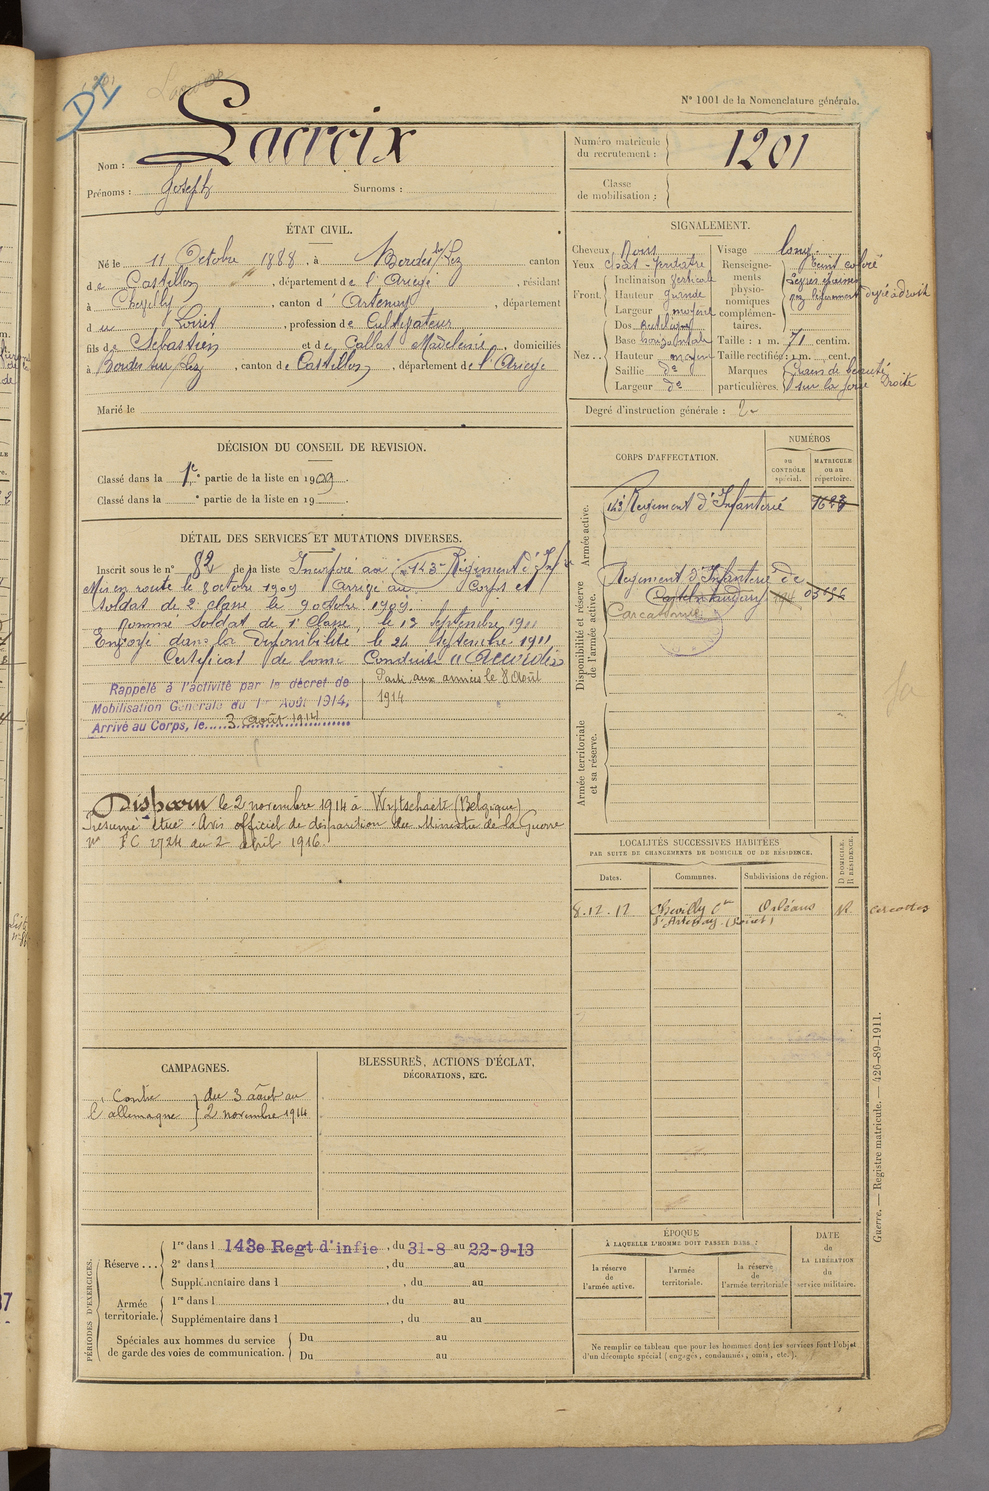 1201
Lacroix
DZ
N° 1001 de la Nomenclature générale.
Nom : Lacroix
Prénoms : Joseph Surnoms :
Numéro matricule du recrutement : 1201
Classe de mobilisation :
ÉTAT CIVIL.
Né le 11 Octobre 1888, à Bordes s/ Lez canton
de Castillon, département de l'Ariège, résidant
à Chevilly, canton d'Artenay, département
du Loiret, profession de Cultivateur
fils de Sébastien et de Callat Madeleine, domiciliés
à Bordes sur Lez, canton de Castillon, département de l'Ariège
Marié le
SIGNALEMENT.
Cheveux Noirs
Yeux chat-verdâtre
Front. Inclinaison verticale
Hauteur grande
Largeur moyenne
Nez. Dos rectiligne
Base horizontale
Hauteur moyen
Saillie de
Largeur de
Visage long.
Renseignements physionomiques complémentaires. Teint coloré
Lèvres épaisses
nez légèrement dévié à droite
Taille : 1 m. 71 centim.
Taille rectifiée : 1 m. cent.
Marques particulières. Grains de beauté
sur la joue Droite
Degré d'instruction générale : 2
DÉCISION DU CONSEIL DE REVISION.
Classé dans la 1e partie de la liste en 1909.
Classé dans la e partie de la liste en 19
DÉTAIL DES SERVICES ET MUTATIONS DIVERSES.
Inscrit sous le n° 82 de la liste Incorporé au 143e Régiment d'Inf
Mis en route le 8 octobre 1909 Arrivé au Corps et
Soldat de 2e classe le 9 octobre 1909.
Nommé Soldat de 1e Classe, le 13 Septembre 1911
Envoyé dans la disponibilité le 24 Septembre 1911
Certificat de bonne Conduite "Accordé"
Rappelé à l'activité par le décret de
Mobilisation Générale du 1er Août 1914.
Arrivé au Corps, le 3 août 1914
Parti aux armées le 8 Août
1914
Disparu le 2 novembre 1914 à Wytschaete (Belgique)
Présumé tué. Avis officiel de disparition du Ministre de la Guerre
n° FC 2724 du 2 avril 1916.
CORPS D'AFFECTATION.
NUMÉROS
au CONTRÔLE spécial.
MATRICULE ou au répertoire.
Armée active.
143e Régiment d'Infanterie
Disponibilité et réserve de l'armée active.
Régiment d'Infanterie de
Castelnaudary
Carcassonne
Armée territoriale et sa réserve.
LOCALITÉS SUCCESSIVES HABITÉES
PAR SUITE DE CHANGEMENTS DE DOMICILE OU DE RÉSIDENCE.
Dates. Communes. Subdivisions de région. D. DOMICILE. R. RÉSIDENCE.
8.12.12 Chevilly Con Orléans R
d'Artenay (Loiret)
CAMPAGNES.
Contre l'allemagne } du 3 août au
2 novembre 1914
BLESSURES, ACTIONS D'ÉCLAT,
DÉCORATIONS, ETC.
PÉRIODES D'EXERCICES.
Réserve... 1re dans l 143e Regt d'infie, du 31-8 au 22-9-13
2e dans l , du au
Supplémentaire dans l , du au
Armée territoriale. 1re dans l , du au
Supplémentaire dans l , du au
Spéciales aux hommes du service
de garde des voies de communication. Du au
Du au
ÉPOQUE
À LAQUELLE L'HOMME DOIT PASSER DANS :
la réserve de l'armée active.
l'armée territoriale.
la réserve de l'armée territoriale
DATE de LA LIBÉRATION du service militaire.
Ne remplir ce tableau que pour les hommes dont les services font l'objet
d'un décompte spécial (engagés, condamnés, omis, etc.).
Guerre. — Registre matricule. — 426-89-1911.